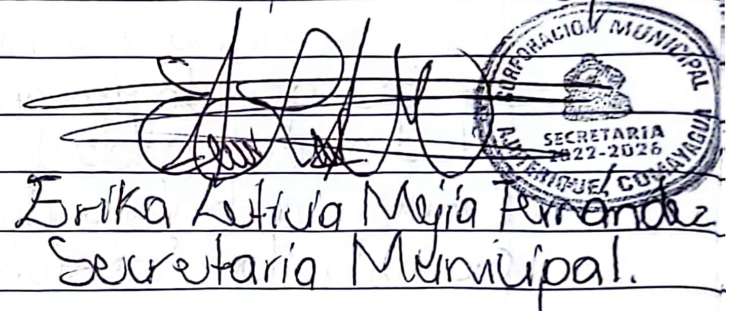 CORPORACION MUNICIPAL
SECRETARIA
2022-2026
AJUTERIQUE, COMAYAGUA
Erika Leticia Mejía Fernandez
Secretaria Municipal.